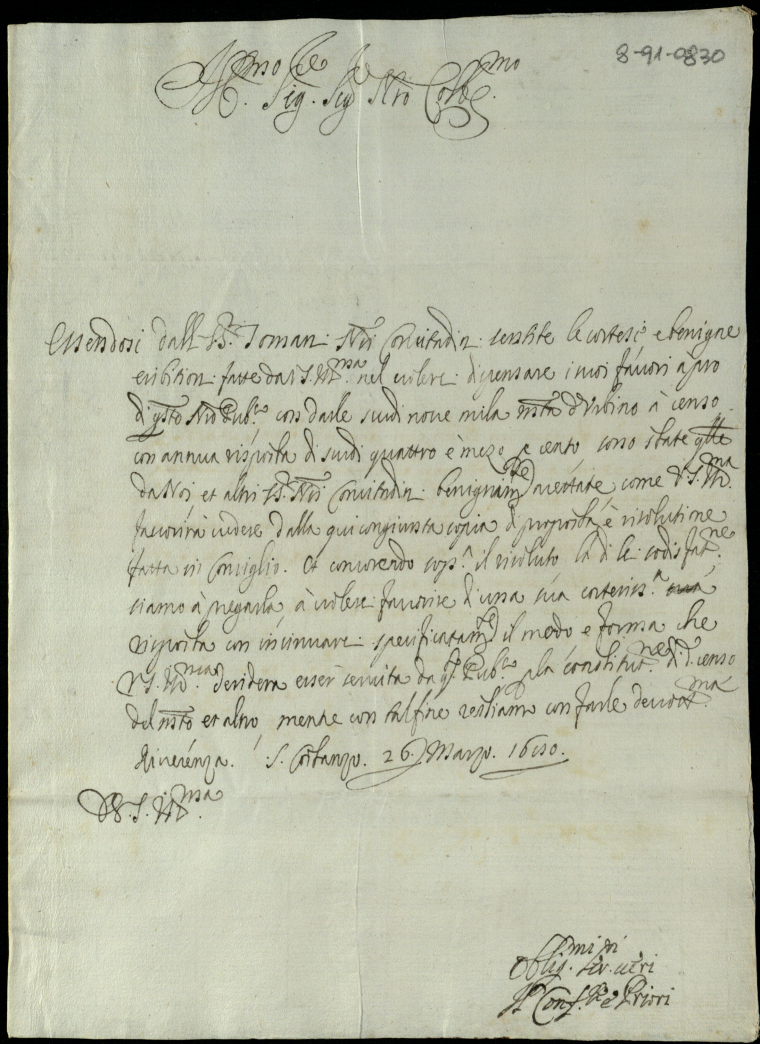 8-91-0830
Ill.mo Sig.re Sig.re Nro Coll.mo
Essendosi dall SS.ri Toman: Nri Concitadin: sentite le cortesi e benigne
esibition: fatte da V.S. Ill.ma nel volere dispensare i suoi favori a pro
di qsto Nro Pub.co con darle scudi nove mila nsta d'Urbino à censo
con annua risposta di scudi quattro e mezo p cento, sono state qlle
da Noi et altri SS.ri Nri Concitadin: benignam.te accettate come V.S. Ill.ma
favorirà vedere dalla qui congiunta copia di proposta, e risolutione
fatta in Consiglio. Et concorrendo il risoluto la di le sodisfat.ne
siamo à pregarla, à volere favorire d'una sua cortesiss.a
risposta con insinuare specificatam.te il modo e forma che
V.S. Ill.ma desidera esser servita da q.sto Pub.co p la constitut.ne di d.o censo
del nsto et altro mentre con tal fine restiamo con farle devot.ma
riverenza. S. Costanzo. 26 Marzo. 1690.
D V.S. Ill.ma
Oblig.mi Ser.ri veri
Il Conf.re e Priori